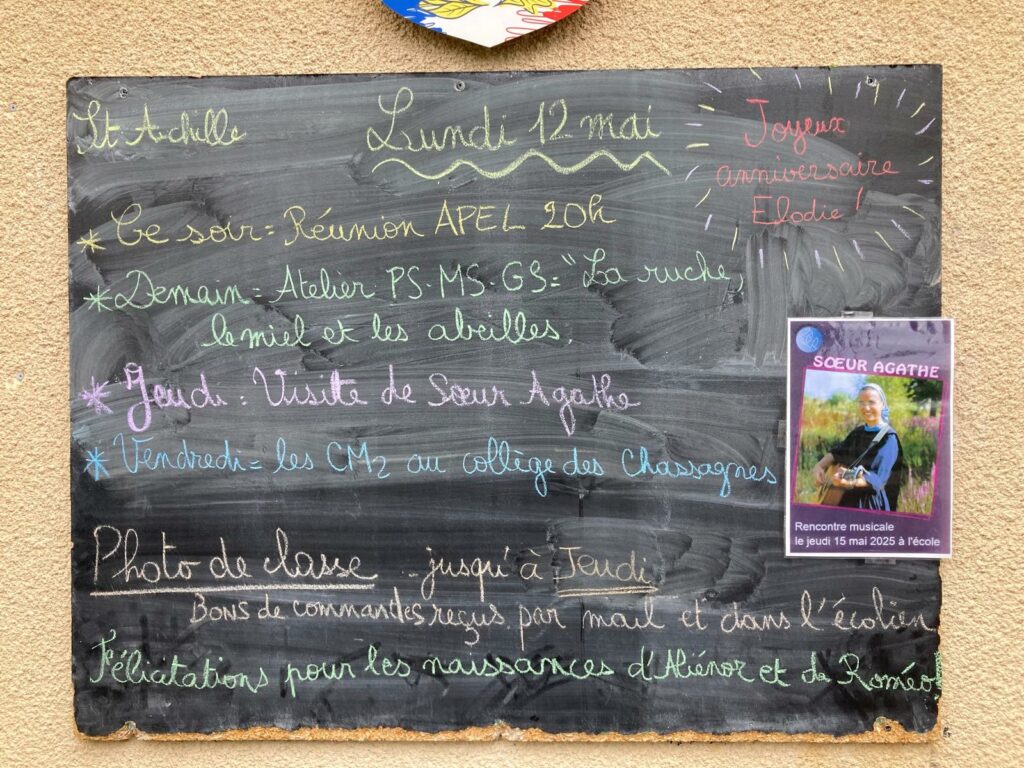 St Achille
Lundi 12 mai
Joyeux
anniversaire
Elodie !
* Ce soir = Réunion APEL 20h
* Demain = Atelier PS-MS-GS = "La ruche,
le miel et les abeilles.
* Jeudi : Visite de Sœur Agathe
* Vendredi = les CM2 au collège des Chassagnes
SŒUR AGATHE
Rencontre musicale
le jeudi 15 mai 2025 à l'école
Photo de classe - jusqu'à Jeudi
Bons de commandes reçus par mail et dans l'écolien
Félicitations pour les naissances d'Aliénor et de Roméo!